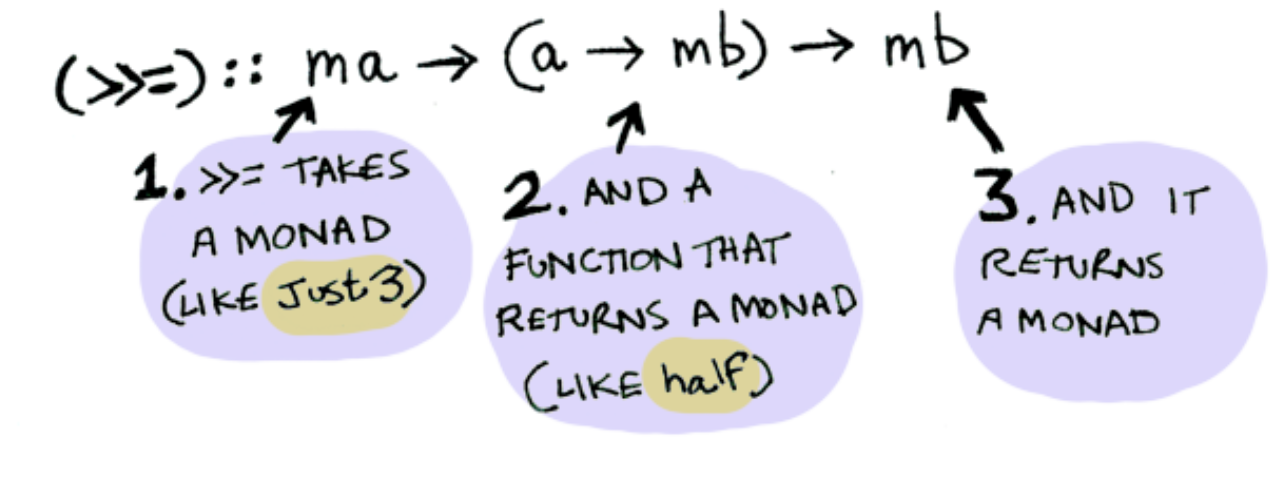 (>>=) :: ma → (a → mb) → mb
1. >>= TAKES
A MONAD
(LIKE Just 3)
2. AND A
FUNCTION THAT
RETURNS A MONAD
(LIKE half)
3. AND IT
RETURNS
A MONAD